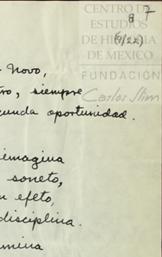 8 7
CENTRO DE
ESTUDIOS
DE HISTORIA
DE MEXICO
(9/22)
FUNDACIÓN
Carlos Slim
Novo,
siempre
oportunidad.
imagina
soneto,
efeto,
disciplina.